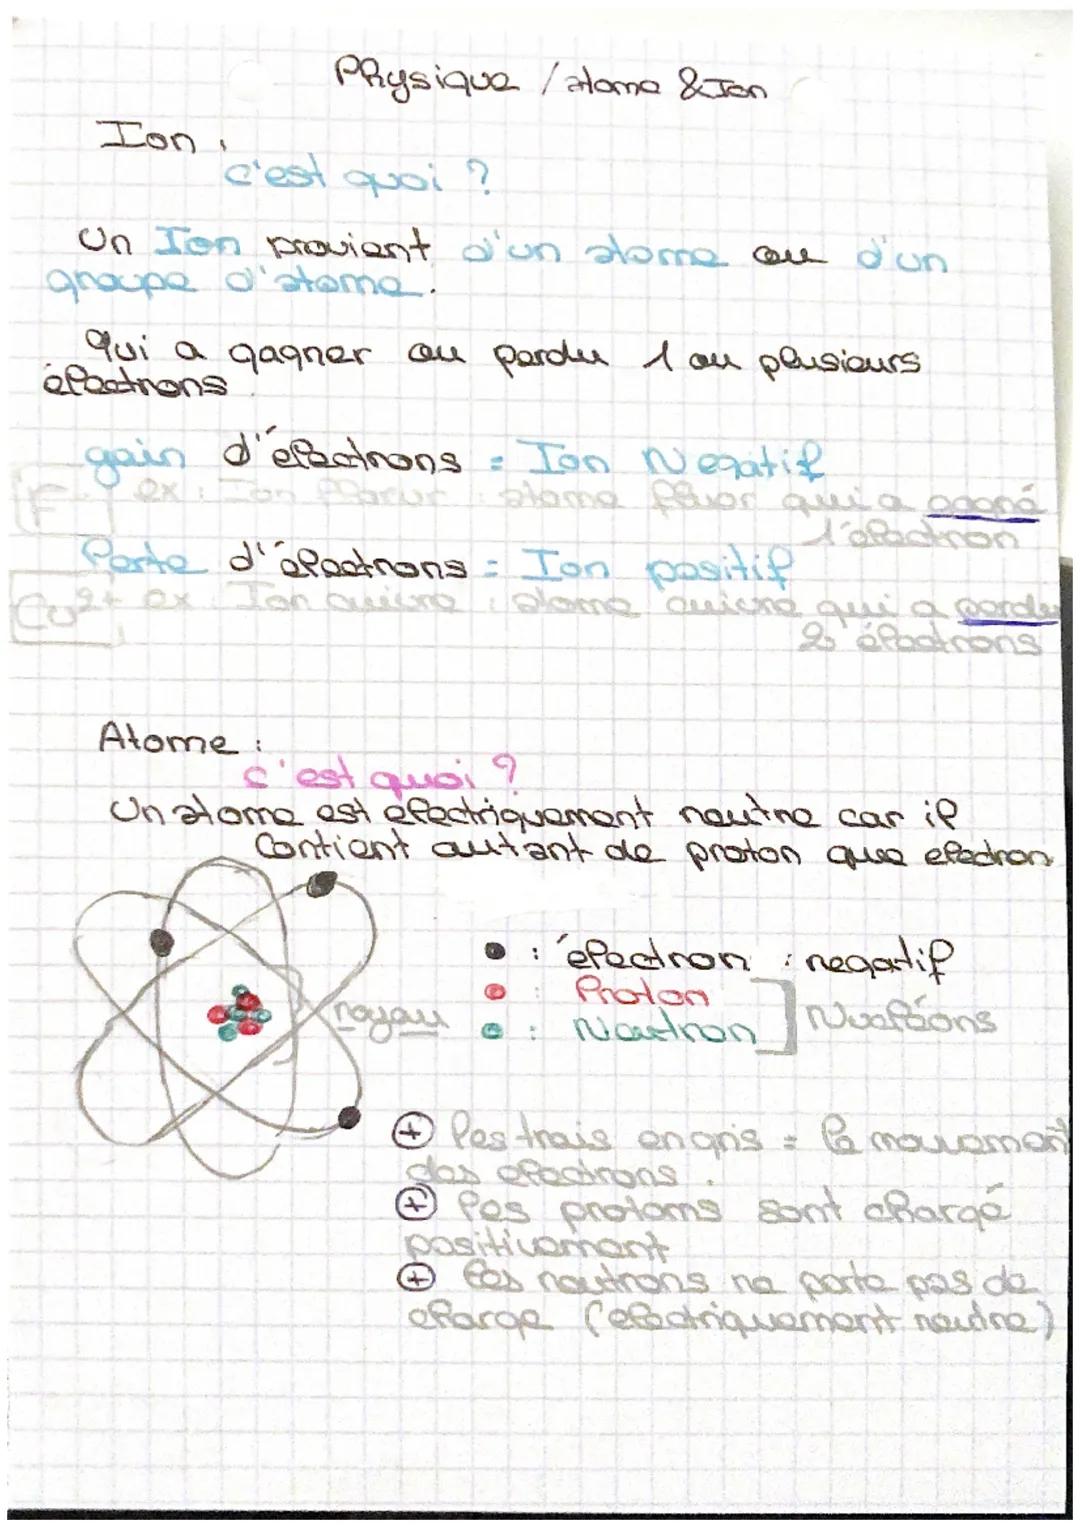 Physique / atome & Ion
Ion :
c'est quoi ?
Un Ion provient d'un atome ou d'un
groupe d'atome.
Qui a gagner ou perdu 1 ou plusieurs
électrons.
gain d'électrons = Ion Negatif
F⁻ ex : Ion : atome fluor qui a gagné
1 électron
Perte d'électrons = Ion positif
Cu²⁺ ex Ion cuivre : atome cuivre qui a perdu
2 électrons
Atome :
c'est quoi ?
Un atome est electriquement neutre car il
Contient autant de proton que electron
● : électron : negatif
● : Proton
● : Neutron
Nucléons
noyau
⊕ les trais en gris = le mouvement
des electrons.
⊕ les protoms sont chargé
positivement
⊕ les neutrons ne porte pas de
charge (electriquement neutre)